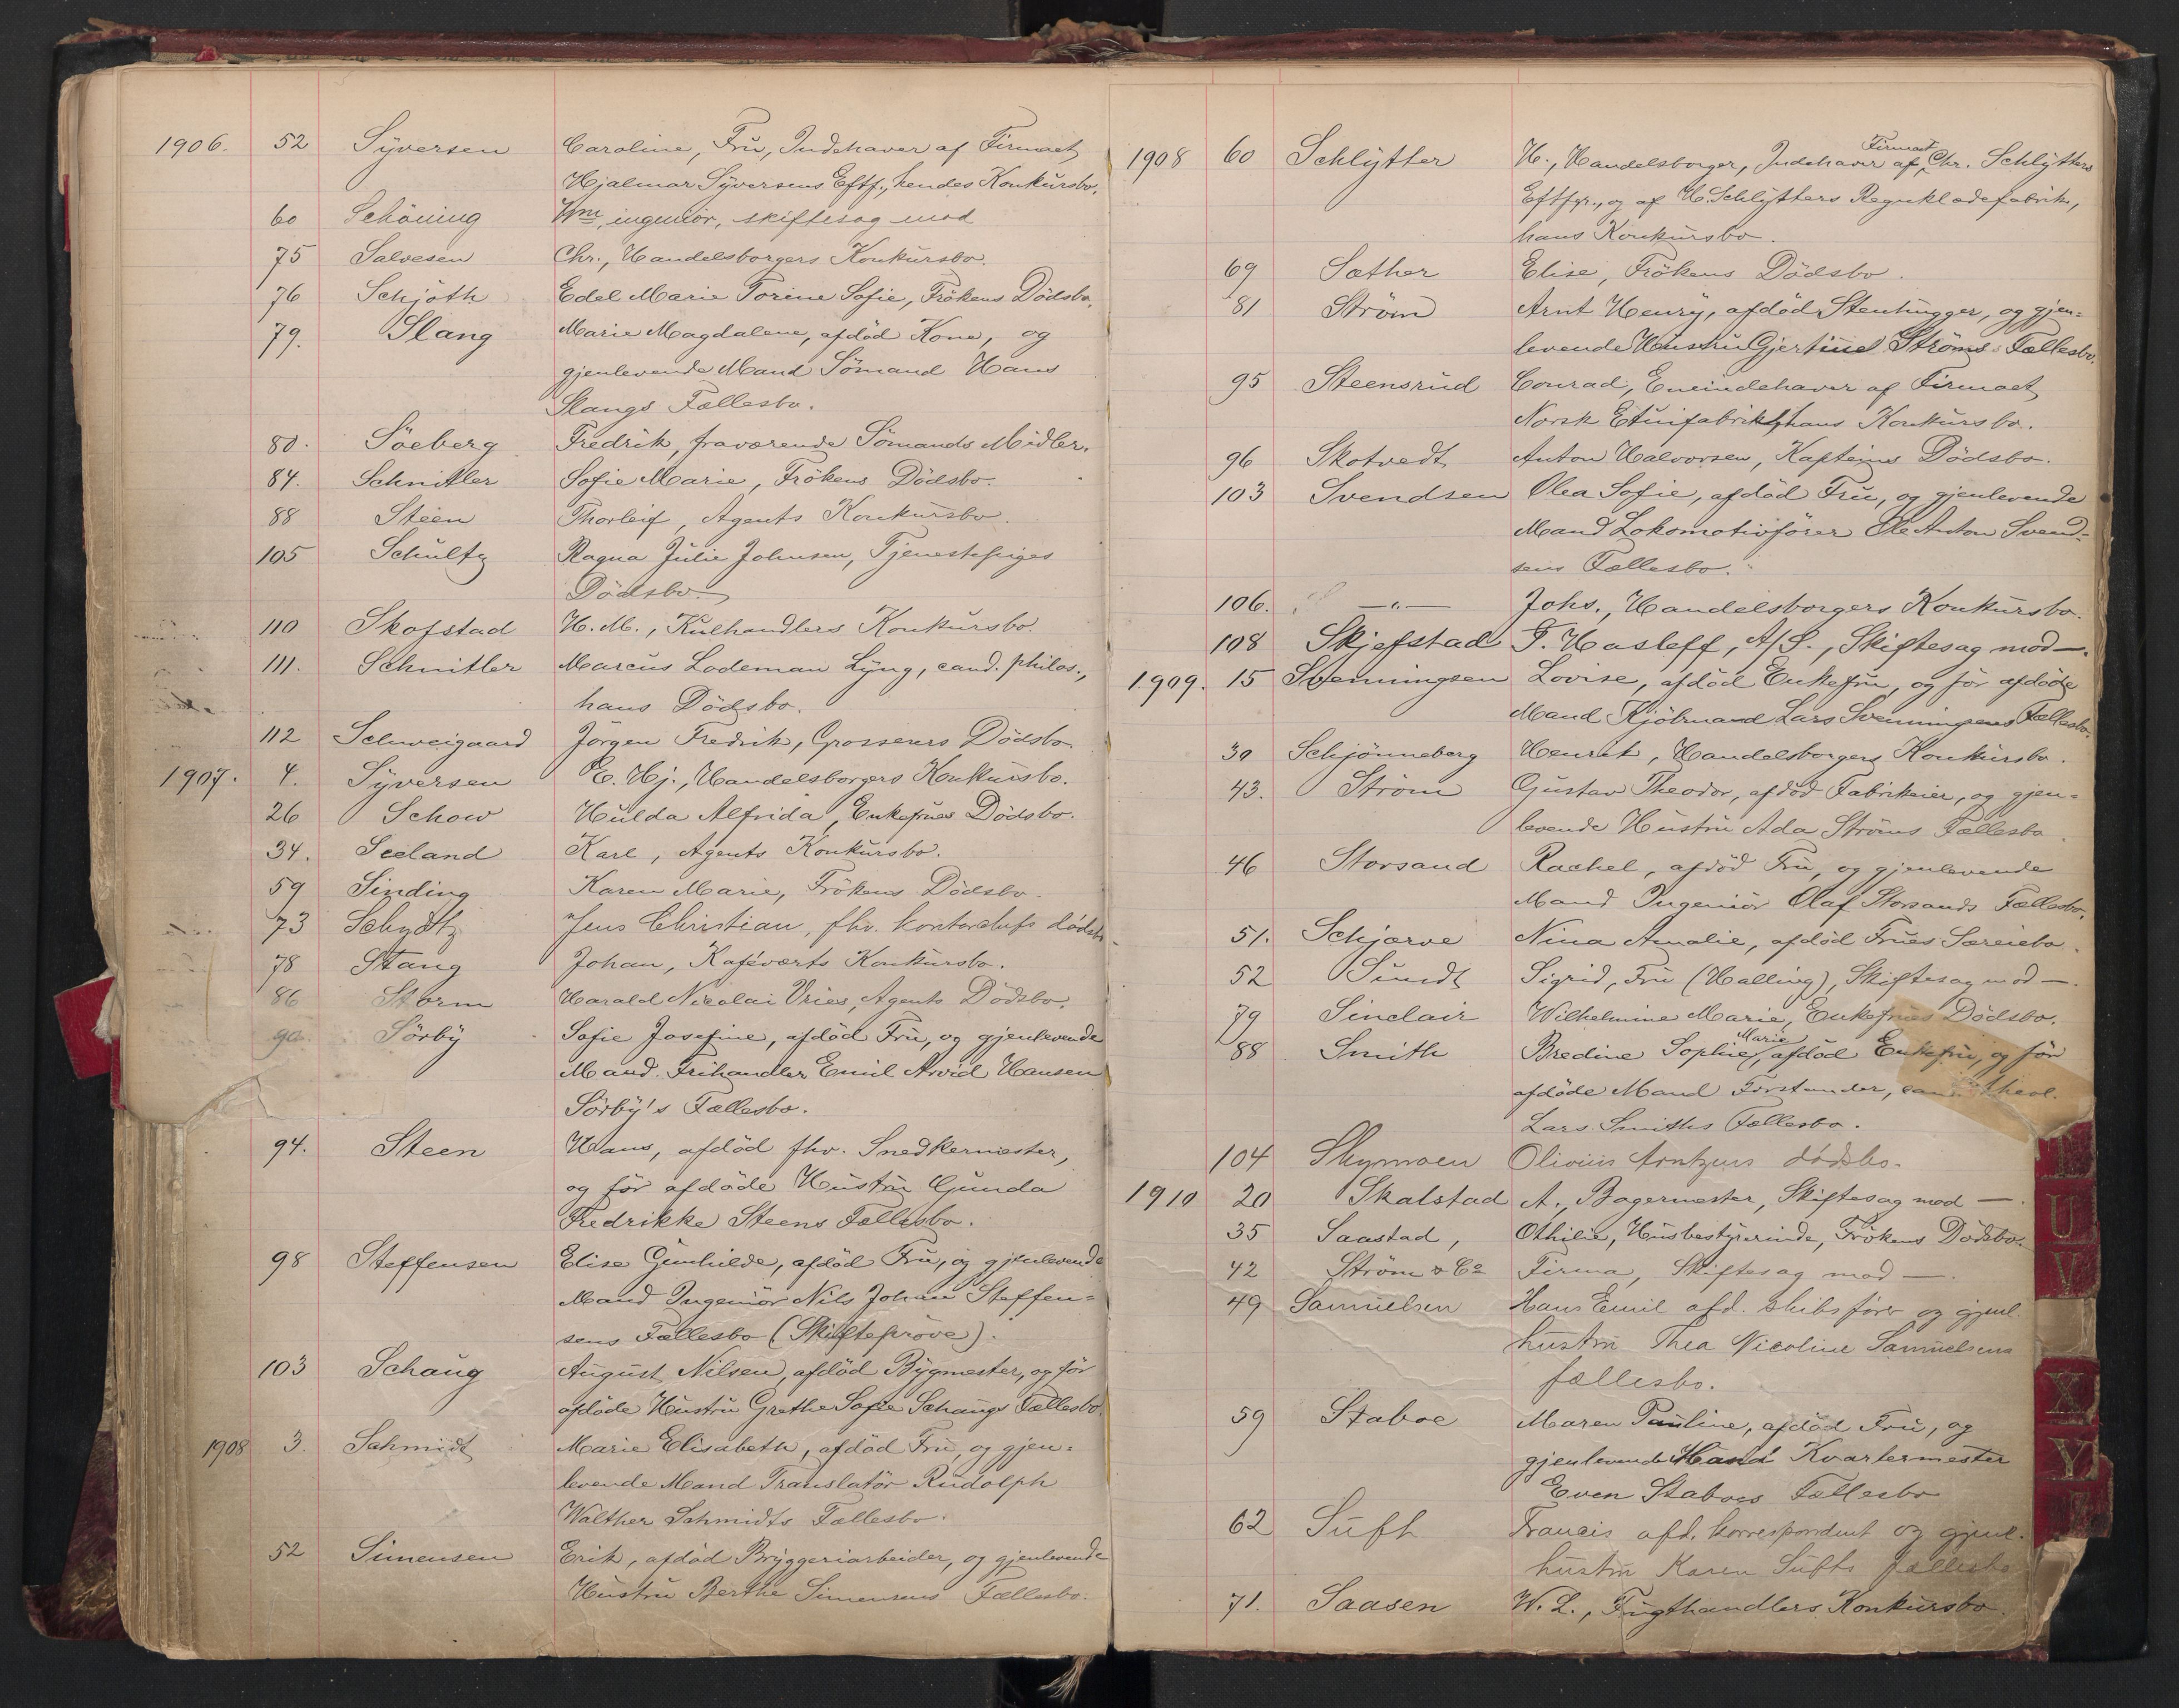 1906. 52 Syversen Caroline, Fru, Indehaver af Firmaet
Hjalmar Syversens Eftf., hendes Konkursbo.
60 Schöning Wm, ingeniör, skiftesag mod
75 Salvesen Chr., Handelsborgers Konkursbo.
76 Schjöth Edel Marie Torine Sofie, Frökens Dödsbo.
79. Slang Marie Magdalene, afdöd Kone, og
gjenlevende Mand Sömand Hans
Slangs Fællesbo.
80. Söeberg Fredrik, fraværende Sömands Midler.
84. Schnitler Sofie Marie, Frökens Dödsbo.
88 Steen Thorleif, Agents Konkursbo.
105 Schultz Ragna Julie Johnsen, Tjenestepiges
Dödsbo.
110 Skofstad H. M., Kulhandlers Konkursbo.
111. Schnitler Marcus Lodeman Lyng, cand. philos.,
hans Dödsbo.
112 Schweigaard Jörgen Fredrik, Grosserers Dödsbo.
1907. 4. Syversen E. Hj., Handelsborgers Konkursbo.
26 Schow Hulda Alfrida, Enkefrues Dödsbo.
34. Seeland Karl, Agents Konkursbo.
59 Sinding Karen Marie, Frökens Dödsbo.
73 Schydtz Jens Christian, fhv. kontorchefs dödsb
78 Stang Johan, Kaféværts Konkursbo.
86 Storm Harald Nicolai Vries, Agents Dödsbo.
90. Sörby Sofie Josefine, afdöd Fru, og gjenlevende
Mand Frihandler Emil Arvid Hansen
Sörby's Fællesbo.
94. Steen Hans, afdöd fhv. Snedkermester,
og för afdöde Hustru Gunda
Fredrikke Steens Fællesbo.
98 Steffensen Elise Gunhilde, afdöd Fru, og gjenlevende
Mand Ingeniör Nils Johan Steffen=
sens Fællesbo (Skifteprøve).
103 Schaug August Nilsen, afdöd Bygmester, og för
afdöde Hustru Grethe Sofie Schaugs Fællesbo.
1908 3. Schmidt Marie Elisabeth, afdöd Fru, og gjen=
levende Mand Translatör Rudolph
Walther Schmidts Fællesbo.
52 Simensen Erik, afdöd Bryggeriarbeider, og gjenlevende
Hustru Berthe Simensens Fællesbo.
1908 60 Schlytter H., Handelsborger, Indehaver af Firmaet Chr. Schlytters
Eftfgr., og af H. Schlytters Regnklædefabrik,
hans Konkursbo.
69 Sæther Elise, Frökens Dödsbo.
81 Ström Arnt Henry, afdöd Stenhugger, og gjen=
levende Hustru Gjertine Ströms Fællesbo.
95 Steensrud Conrad, Eneindehaver af Firmaet
Norsk Etuifabrik, hans Konkursbo.
96 Skotvedt Anton Halvorsen, Kapteins Dödsbo.
103 Svendsen Olea Sofie, afdöd Fru, og gjenlevende
Mand Lokomotivförer Ole Anton Svend-
sens Fællesbo.
106. —"— Johs., Handelsborgers Konkursbo.
108 Skjefstad T. Hasleff, A/S., Skiftesag mod —.
1909. 15 Svenningsen Lovise, afdöd Enkefru, og för afdöde
Mand Kjöbmand Lars Svenningsens Fællesbo.
30 Schjönneberg Henrik, Handelsborgers Konkursbo.
43. Ström Gustav Theodor, afdöd Fabrikeier, og gjen=
levende Hustru Ada Ströms Fællesbo.
46 Storsand Rachel, afdöd Fru, og gjenlevende
Mand Ingeniör Olaf Storsands Fællesbo.
51. Schjarve Nina Amalie, afdöd Frues Særeiebo.
52 Sundt Sigrid, Fru (Halling), Skiftesag mod —.
79 Sinclair Wilhelmine Marie, Enkefrues Dödsbo.
88 Smith Bredine Sophie Marie, afdöd Enkefru, og för
afdöde Mand Forstander, cand. theol.
Lars Smiths Fællesbo.
104 Skymoen Olivius Arntzens dödsbo.
1910 20 Skalstad A., Bagermester, Skiftesag mod —.
35 Saastad, Othilie, Husbestyrerinde, Frökens Dödsbo.
42 Ström & Co Firma, Skiftesag mod —.
49 Samuelsen Hans Emil afd. skibsförer og gjenl.
hustru Thea Nicoline Samuelsens
fællesbo.
59 Staboe Maren Pauline, afdöd Fru, og
gjenlevende Mand Kvartermester
Even Staboes Fællesbo
62 Suft Francis afd. korrespondent og gjenl.
hustru Karen Sufts fællesbo
71. Saasen W. L., Frugthandlers Konkursbo.
U
V
X
Y